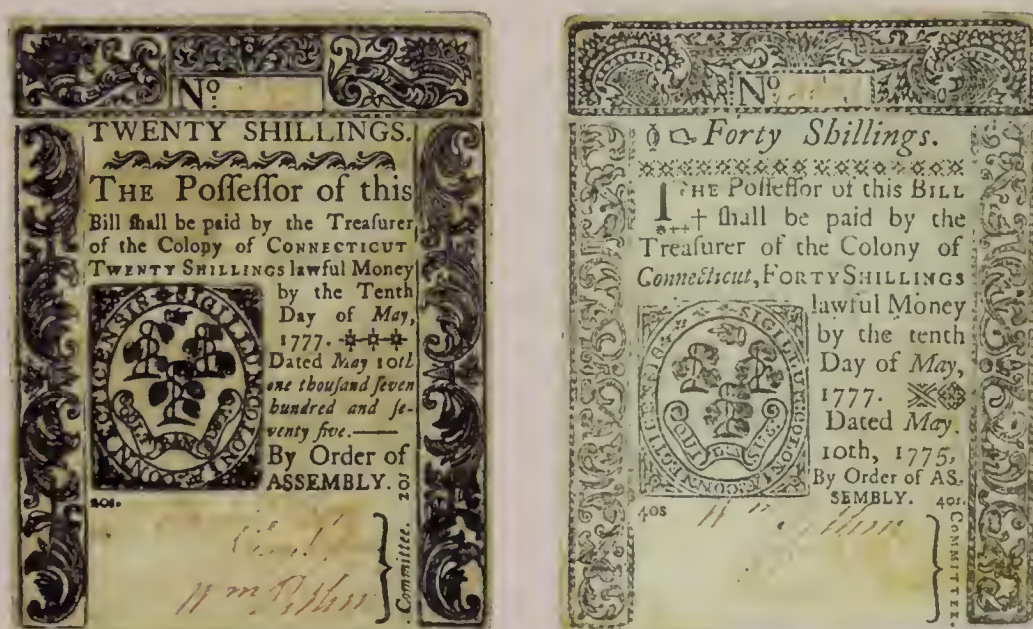 Nº
TWENTY SHILLINGS.
THE Poſſeſſor of this
Bill ſhall be paid by the Treaſurer
of the Colopy of CONNECTICUT
TWENTY SHILLINGS lawful Money
by the Tenth
Day of May,
1777.
Dated May 10th
one thouſand ſeven
hundred and ſe-
venty five.—
By Order of
ASSEMBLY.
20s.
20s
SIGILLUM COLONIÆ CONNECTICENSIS
Committee.
Wm Pitkin
Nº
Forty Shillings.
THE Poſſeſſor of this BILL
ſhall be paid by the
Treaſurer of the Colony of
Connecticut, FORTY SHILLINGS
lawful Money
by the tenth
Day of May,
1777.
Dated May,
10th, 1775,
By Order of AS-
SEMBLY.
40s
40s.
SIGILLUM COLONIÆ CONNECTICENSIS
COMMITTEE.
Wm Pitkin